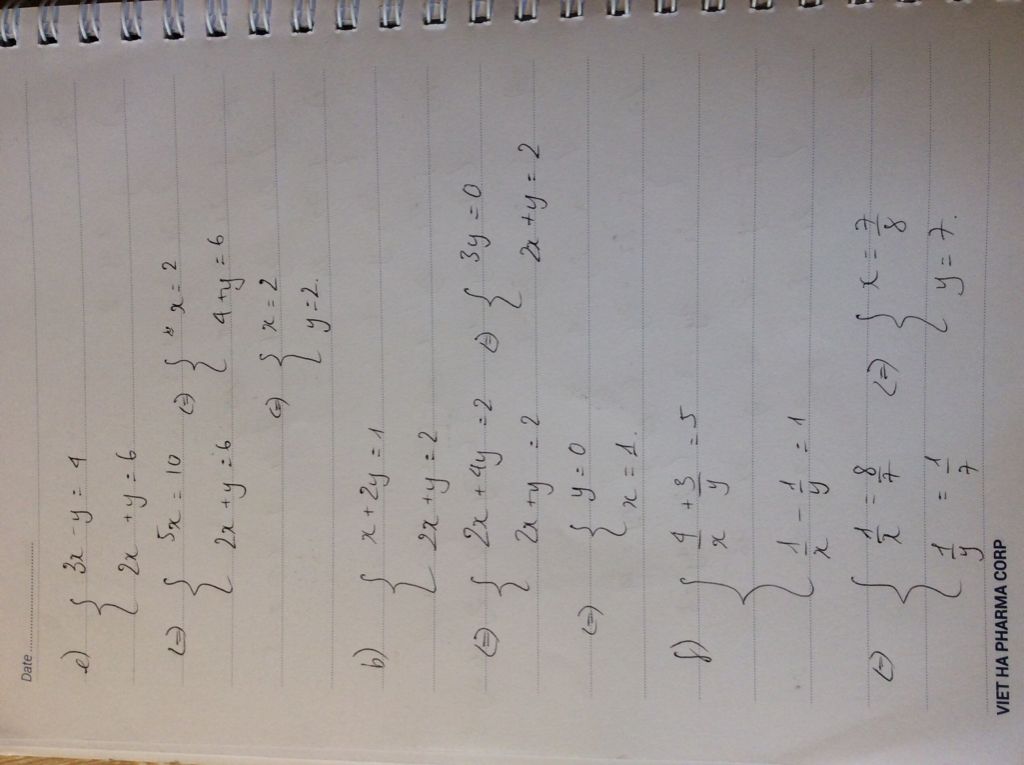 Date
e) { 3x - y = 4
2x + y = 6
(=) { 5x = 10 (=) { x = 2
2x + y = 6 { 4 + y = 6
(=) { x = 2
y = 2.
b) { x + 2y = 1
2x + y = 2
(=) { 2x + 4y = 2 (=) { 3y = 0
2x + y = 2 2x + y = 2
(=) { y = 0
x = 1.
f) { 4/x + 3/y = 5
1/x - 1/y = 1
(=) { 1/x = 8/7 (=) { x = 7/8
1/y = 1/7 y = 7.
VIET HA PHARMA CORP